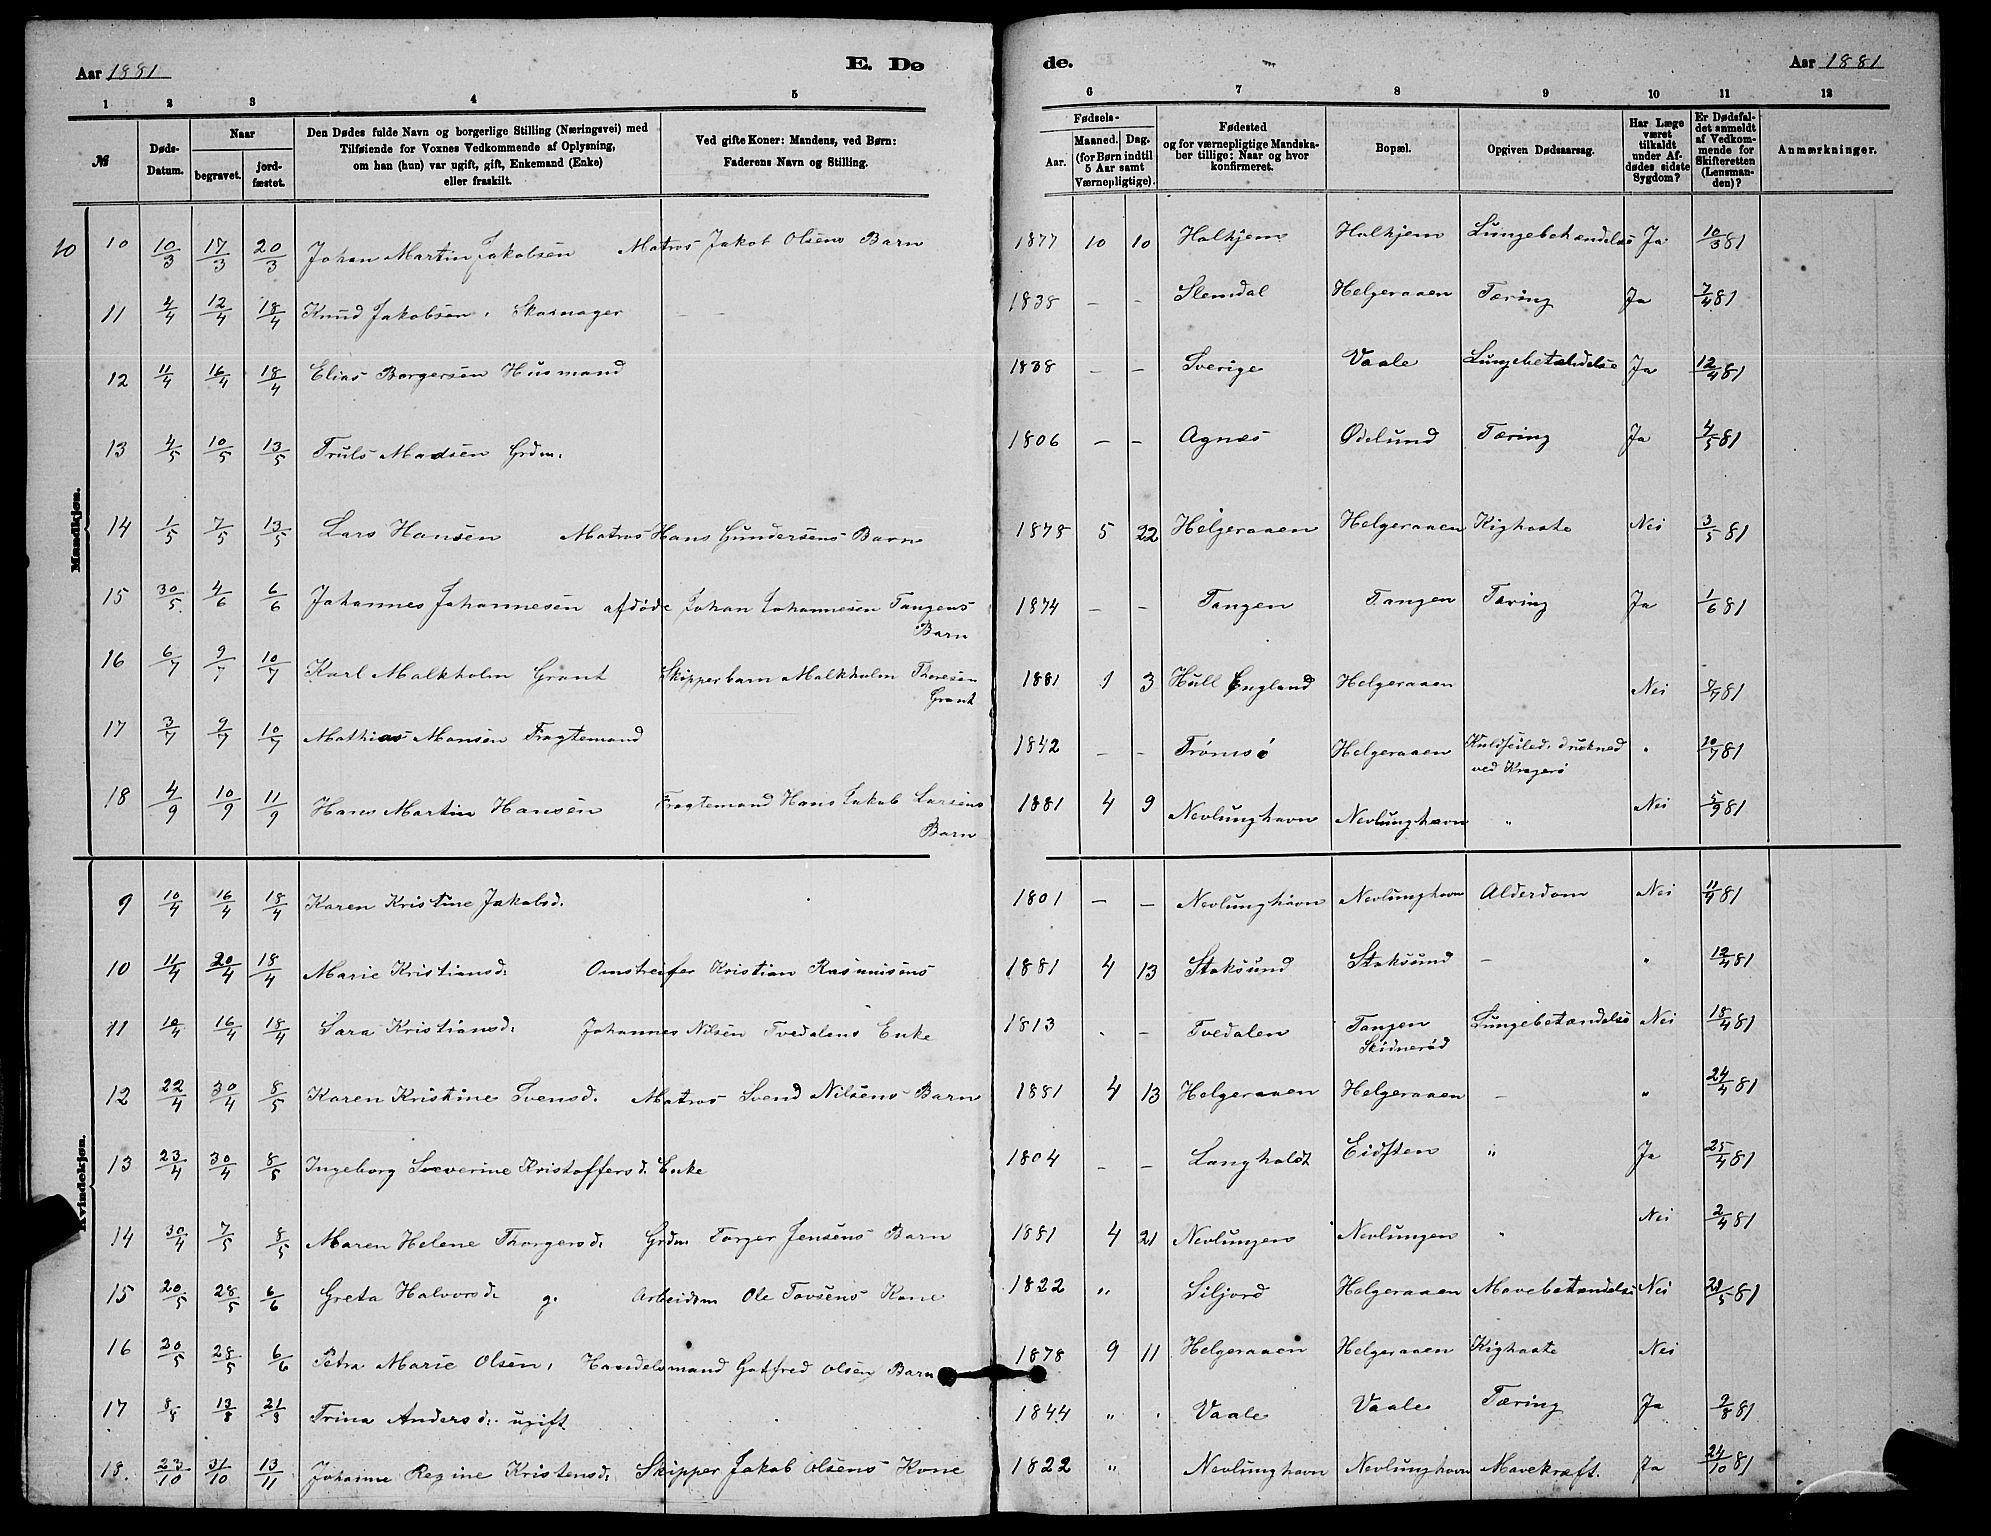 Aar 1881 E. Dø
1 2 3 4 5
№ Døds-Datum. Naar begravet. jordfæstet. Den Dødes fulde Navn og borgerlige Stilling (Næringsvei) med Tilføiende for Voxnes Vedkommende af Oplysning, om han (hun) var ugift, gift, Enkemand (Enke) eller fraskilt. Ved gifte Koner: Mandens, ved Børn: Faderens Navn og Stilling.
Mandkjøn.
10 10 10/3 17/3 20/3 Johan Martin Jakobsen Matros Jakob Olsens Barn
11 4/4 12/4 18/4 Knud Jakobsen, Skomager
12 11/4 16/4 18/4 Elias Borgersen Husmand
13 4/5 10/5 13/5 Truls Madsen Grdm.
14 1/5 7/5 13/5 Lars Hansen Matros Hans Gundersens Barn
15 30/5 4/6 6/6 Johannes Johannesen afdøde Johan Johannesen Tangens
Barn
16 6/7 9/7 10/7 Karl Malkholm Grant Skipperbarn Malkholm Thoresen
Grant
17 3/7 9/7 10/7 Mathias Monsen Fragtemand
18 4/9 10/9 11/9 Hans Martin Hansen Fragtemand Hans Jakob Larsens
Barn
Kvindekjøn.
9 10/4 16/4 18/4 Karen Kristine Jakobsd.
10 11/4 20/4 18/4 Marie Kristiansd. Omstreifer Kristian Rasmusens
11 10/4 16/4 18/4 Sara Kristiansd. Johannes Nilsen Tvedalens Enke
12 22/4 30/4 8/5 Karen Kristine Svensd. Matros Svend Nilsens Barn
13 23/4 30/4 8/5 Ingeborg Severine Kristoffersd. Enke
14 30/4 7/5 8/5 Maren Helene Thorgersd. Grdm Torger Jensens Barn
15 20/5 28/5 6/6 Greta Halvorsd. g. Arbeidsm Ole Tovsens Kone
16 20/5 28/5 6/6 Petra Marie Olsen, Handelsmand Gotfred Olsen Barn
17 8/8 13/8 21/8 Trina Andersd. ugift
18. 23/10 31/10 13/11 Johanne Regine Kristensd. Skipper Jakob Olsens Kone
de. Aar 1881
6 7 8 9 10 11 12
Fødsels- Aar. Maaned. Dag. (for Børn indtil 5 Aar samt Værnepligtige). Fødested og for værnepligtige Mandskaber tillige: Naar og hvor konfirmeret. Bopæl. Opgiven Dødsaarsag. Har Læge været tilkaldt under Afdødes sidste Sygdom? Er Dødsfaldet anmeldt af Vedkommende for Skifteretten (Lensmanden)? Anmærkninger.
1877 10 10 Halkjem Halkjem Lungebetændelse Ja 10/3 81
1838 – – Slemdal Helgeraaen Tæring Ja 7/4 81
1838 – – Sverige Vaale Lungebetændelse Ja 12/4 81
1806 – – Agnæs Ødelund Tæring Ja 4/5 81
1878 5 22 Helgeraaen Helgeraaen Kighoste Nei 3/5 81
1874 – – Tangen Tangen Tæring Ja 1/6 81
1881 1 3 Hull England Helgeraaen Nei 7/7 81
1842 – – Tromsø Helgeraaen Kuldseiled. drukned
ved Kragerø " 10/7 81
1881 4 9 Nevlunghavn Nevlunghavn " Nei 5/9 81
1801 – – Nevlunghavn Nevlunghavn Alderdom Nei 11/4 81
1881 4 13 Stoksund Stoksund – " 12/4 81
1813 – – Tvedalen Tangen
Skidnerød Lungebetændelse Nei 18/4 81
1881 4 13 Helgeraaen Helgeraaen – " 24/4 81
1804 – – Langholdt Eidsten " Ja 25/4 81
1881 4 21 Nevlungen Nevlungen " Nei 2/4 81
1822 " Siljord Helgeraaen Mavebetændelse Nei 21/5 81
1878 9 11 Helgeraaen Helgeraaen Kighoste Nei
1844 " Vaale Vaale Tæring Ja 9/8 81
1822 " Nevlunghavn Nevlunghavn Mavekræft. Ja 24/10 81